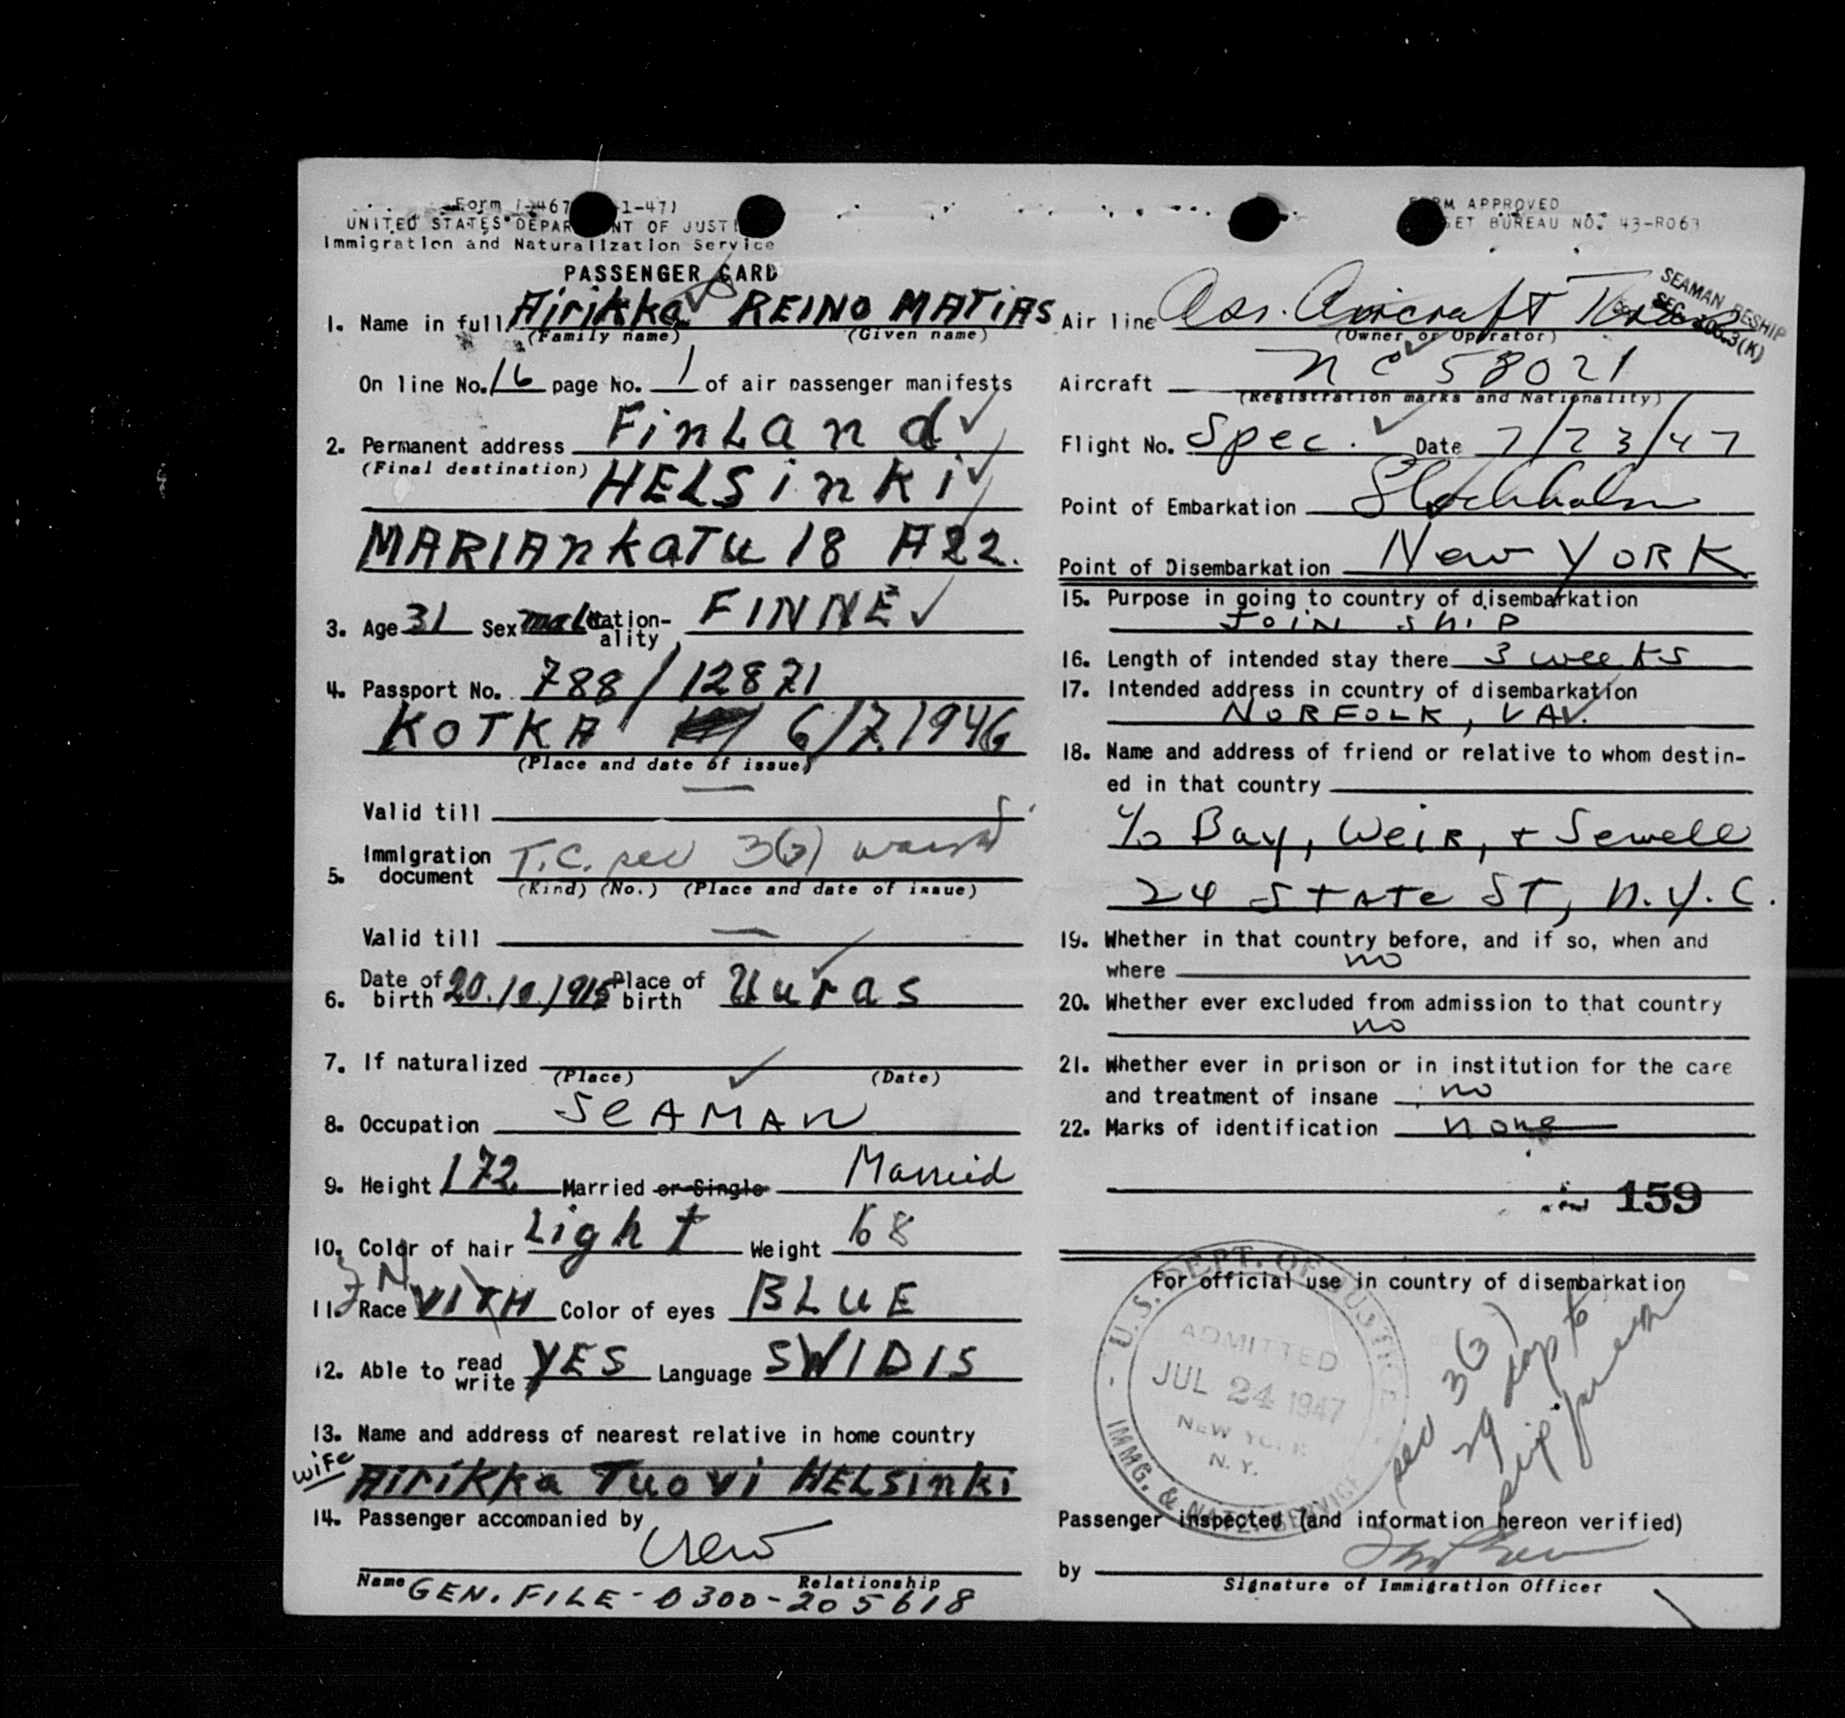 UNITED STATES DEPARTMENT OF JUSTICE
Immigration and Naturalization Service
PASSENGER CARD
1. Name in full Airikka REINO MATIAS
(Family name) (Given name)
On line No. 16 page No. 1 of air passenger manifests
2. Permanent address FinLand
(Final destination) HELSinki
MARIAnkaTu 18 A22.
3. Age 31 Sex male Nationality FINNE
4. Passport No. 788/12871
KOTKA 6/7.1946
(Place and date of issue)
Valid till —
5. Immigration document T.C. sec 3(3)
(Kind) (No.) (Place and date of issue)
Valid till —
6. Date of birth 20./ /915 Place of birth Uuras
7. If naturalized
(Place) (Date)
8. Occupation SeAMAN
9. Height 172 Married or Single Married
10. Color of hair Light Weight 68
11. Race VITH Color of eyes BLUE
12. Able to read write YES Language SWIDIS
13. Name and address of nearest relative in home country
wife Airikka Tuovi HELSinki
14. Passenger accompanied by
Crew
Name Relationship
GEN. FILE-0300-205618
FORM APPROVED
BUDGET BUREAU NO. 43-R063
SEAMAN RESHIP
Air line Aircraft
(Owner or Operator)
Aircraft NC 58021
(Registration marks and Nationality)
Flight No. Spec. Date 7/23/47
Point of Embarkation Stockholm
Point of Disembarkation New YORK
15. Purpose in going to country of disembarkation
JOIN ShIP
16. Length of intended stay there 3 weeks
17. Intended address in country of disembarkation
NORFOLK, VA.
18. Name and address of friend or relative to whom destin-
ed in that country
c/o Bay, Weir, + Sewell
24 STATe ST, N.Y.C.
19. Whether in that country before, and if so, when and
where no
20. Whether ever excluded from admission to that country
no
21. Whether ever in prison or in institution for the care
and treatment of insane no
22. Marks of identification none
159
For official use in country of disembarkation
U.S. DEPT. OF JUSTICE
ADMITTED
JUL 24 1947
NEW YORK
N.Y.
IMMG. & NATZ. SERVICE
sec 3(3)
29
Passenger inspected (and information hereon verified)
by
Signature of Immigration Officer